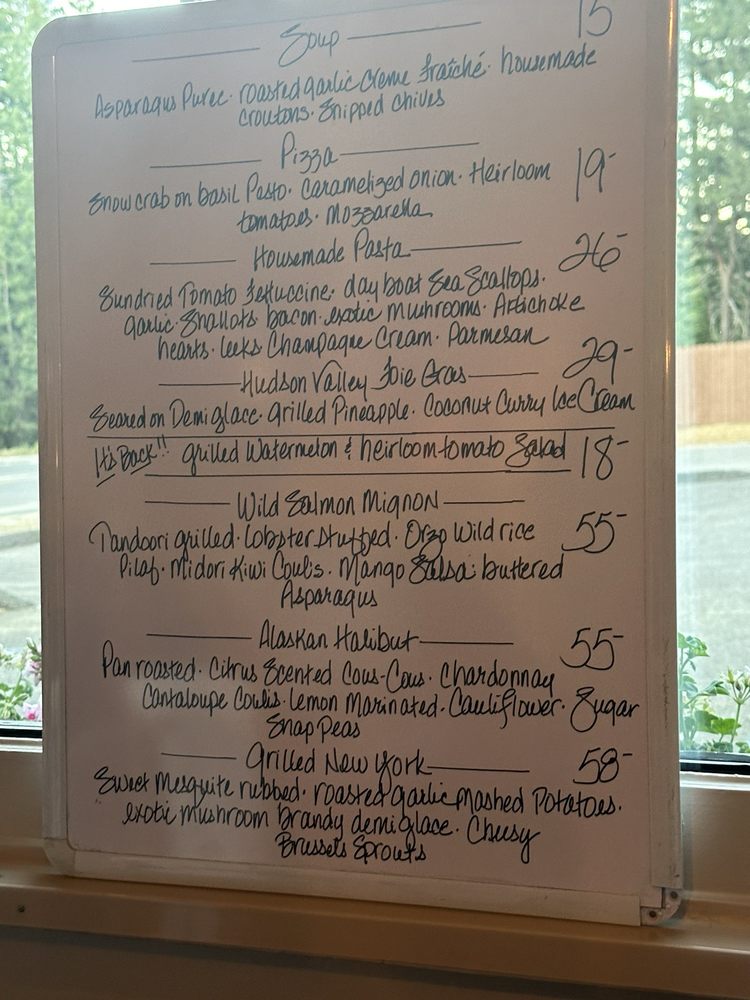 Soup 15
Asparagus Puree · roasted garlic Creme fraiché · housemade
croutons · Snipped chives
Pizza 19-
Snow crab on basil Pesto · Caramelized onion · Heirloom
tomatoes · Mozzarella
Housemade Pasta 26-
Sundried Tomato Fettuccine · day boat Sea Scallops ·
garlic · Shallots · bacon · exotic mushrooms · Artichoke
hearts · leeks Champagne Cream · Parmesan
Hudson Valley Foie Gras 29-
Seared on Demi glace · grilled Pineapple · Coconut Curry Ice Cream
It's Back!! grilled Watermelon & heirloom tomato Salad 18-
Wild Salmon Mignon 55-
Tandoori grilled · Lobster Stuffed · Orzo Wild rice
Pilaf · Midori Kiwi Coulis · Mango Salsa · buttered
Asparagus
Alaskan Halibut 55-
Pan roasted · Citrus Scented Cous-Cous · Chardonnay
Cantaloupe Coulis · Lemon Marinated · Cauliflower · Sugar
Snap Peas
Grilled New York 58-
Sweet Mesquite rubbed · roasted garlic Mashed Potatoes ·
exotic mushroom brandy demi glace · Cheesy
Brussels Sprouts